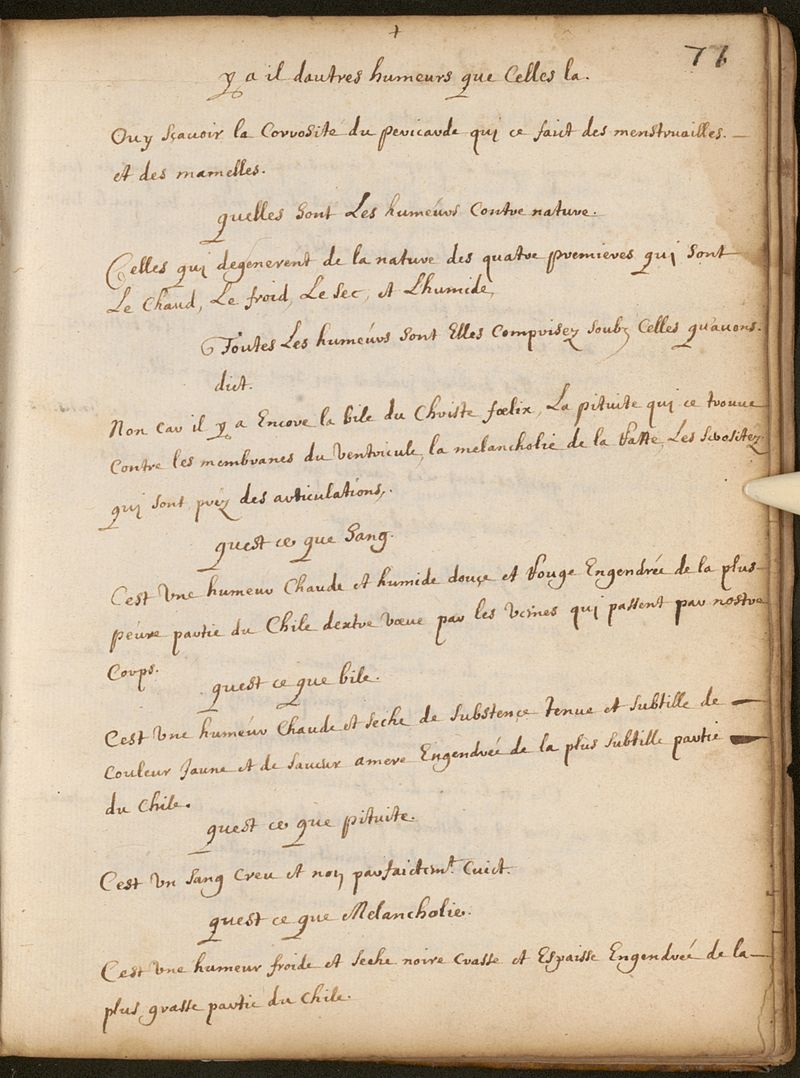 +
71
y a il dautres humeurs que Celles la.
Ouy sçavoir la Corrosité du pericarde qui ce faict des menstruailles.
et des mamelles.
quelles sont Les humeurs Contre nature.
Celles qui degenerent de la nature des quatre premieres qui sont
Le Chaud, Le froid, Le sec, et Lhumide,
Toutes Les humeurs sont Elles Comprisez soubz Celles qu'avons.
dict.
Non car il y a Encore la bile du Christe fœlix, La pituite qui ce trouve
Contre les membranes du Ventricule, la melancholie de la Ratte, Les Serositéz
qui sont prez des articulations,.
quest ce que Sang.
Cest Une humeur Chaude et humide douçe et Rouge Engendrée de la plus
peure partie du Chile dextre par les Veines qui passent par nostre
Corps.
quest ce que bile.
Cest Une humeur Chaude et seche de substence tenue et subtille de
Couleur Jaune et de saveur amere Engendrée de la plus subtille partie
du Chile.
quest ce que pituite.
Cest Un sang Creu et non parfaictemt. Cuict.
quest ce que Melancholie.
Cest Une humeur froide et seche noire Crasse et Espaisse Engendreé de la
plus grasse partie du Chile.